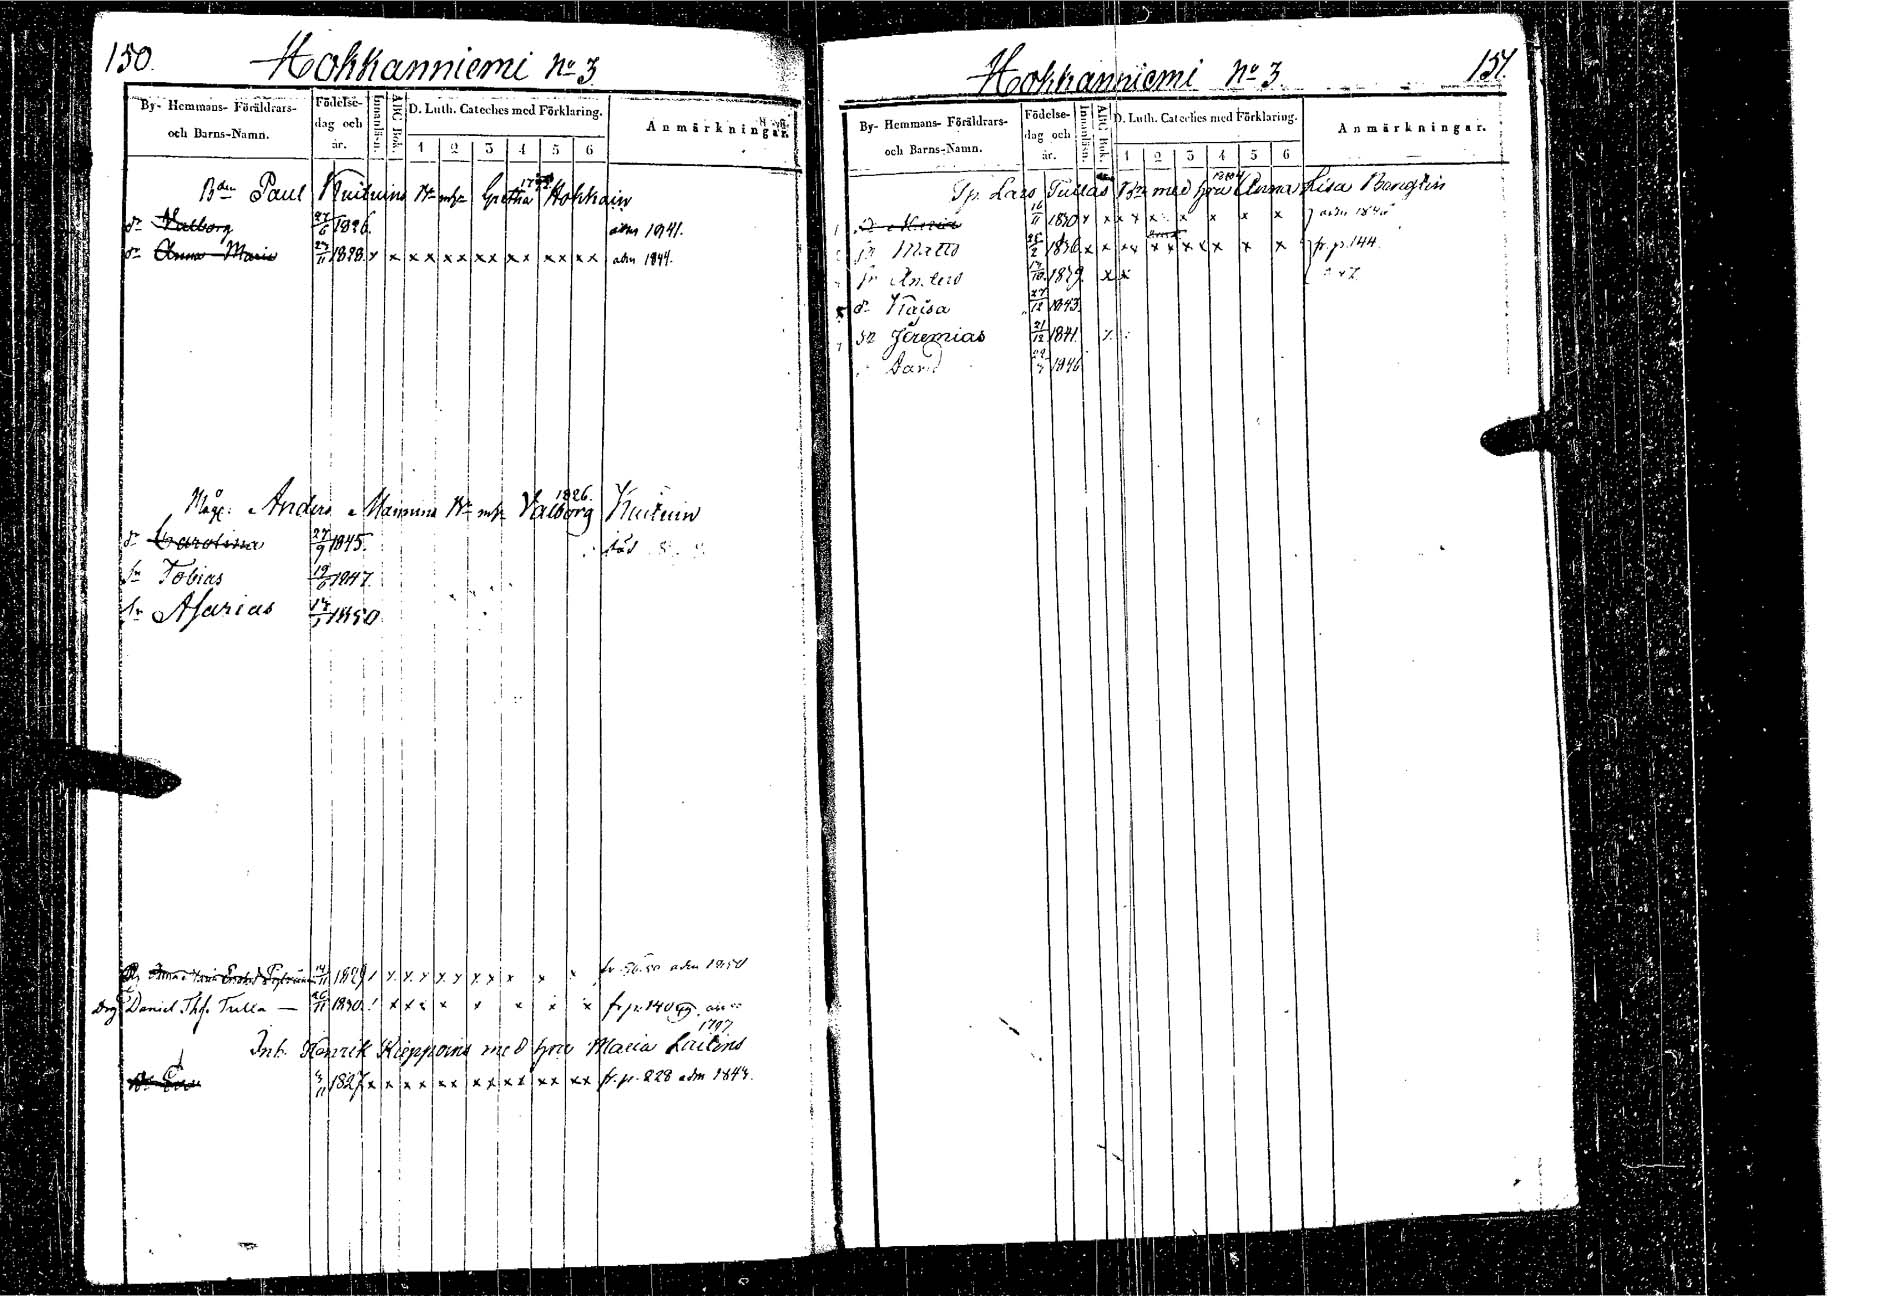 150.
Hokkanniemi No 3
By- Hemmans- Föräldrars-
och Barns-Namn.
Födelse-
dag och
år.
Innanläsn.
ABC Bok.
D. Luth. Cateches med Förklaring.
1 2 3 4 5 6
Anmärkningar.
Bdn Paul Kuituins Br mhu Gretha Hokkain
dr Valborg 27/6 1826. adm 1941.
dr Anna Maria 27/11 1828. x x x x x x x x x x x x x adm 1844.
1826.
Måg: Anders Manning Br mhu Valborg Kuituin
dr Carolina 27/9 1845. död
sn Tobias 19/6 1847.
sn Asarias 17/ 1850
Anna 14/11 1829 x x x x x x x x x adm 1850
Drg Daniel Thf. Tulla — 26/11 1830. x x x x x x x x fr. p. 140
1797
Inh. Henrik Kieppoins med hru Maria Laitins
dr Eva 3/11 1827 x x x x x x x x x x x x x x fr. p. 228 adm 1844.
151.
Hokkanniemi No 3
By- Hemmans- Föräldrars-
och Barns-Namn.
Födelse-
dag och
år.
Innanläsn.
ABC Bok.
D. Luth. Cateches med Förklaring.
1 2 3 4 5 6
Anmärkningar.
Sp. Lars Tullas Br med hru Anna Lisa Bengtin
dr Maria 16/11 1830 x x x x x x x x x adm 184
sn Matts 25/2 1836 x x x x x x x x x x x x fr. p. 144.
sn Anters 17/10 1839. x x
dr Kaisa 27/12 1843.
sn Jeremias 21/12 1841.
David 22/7 1846